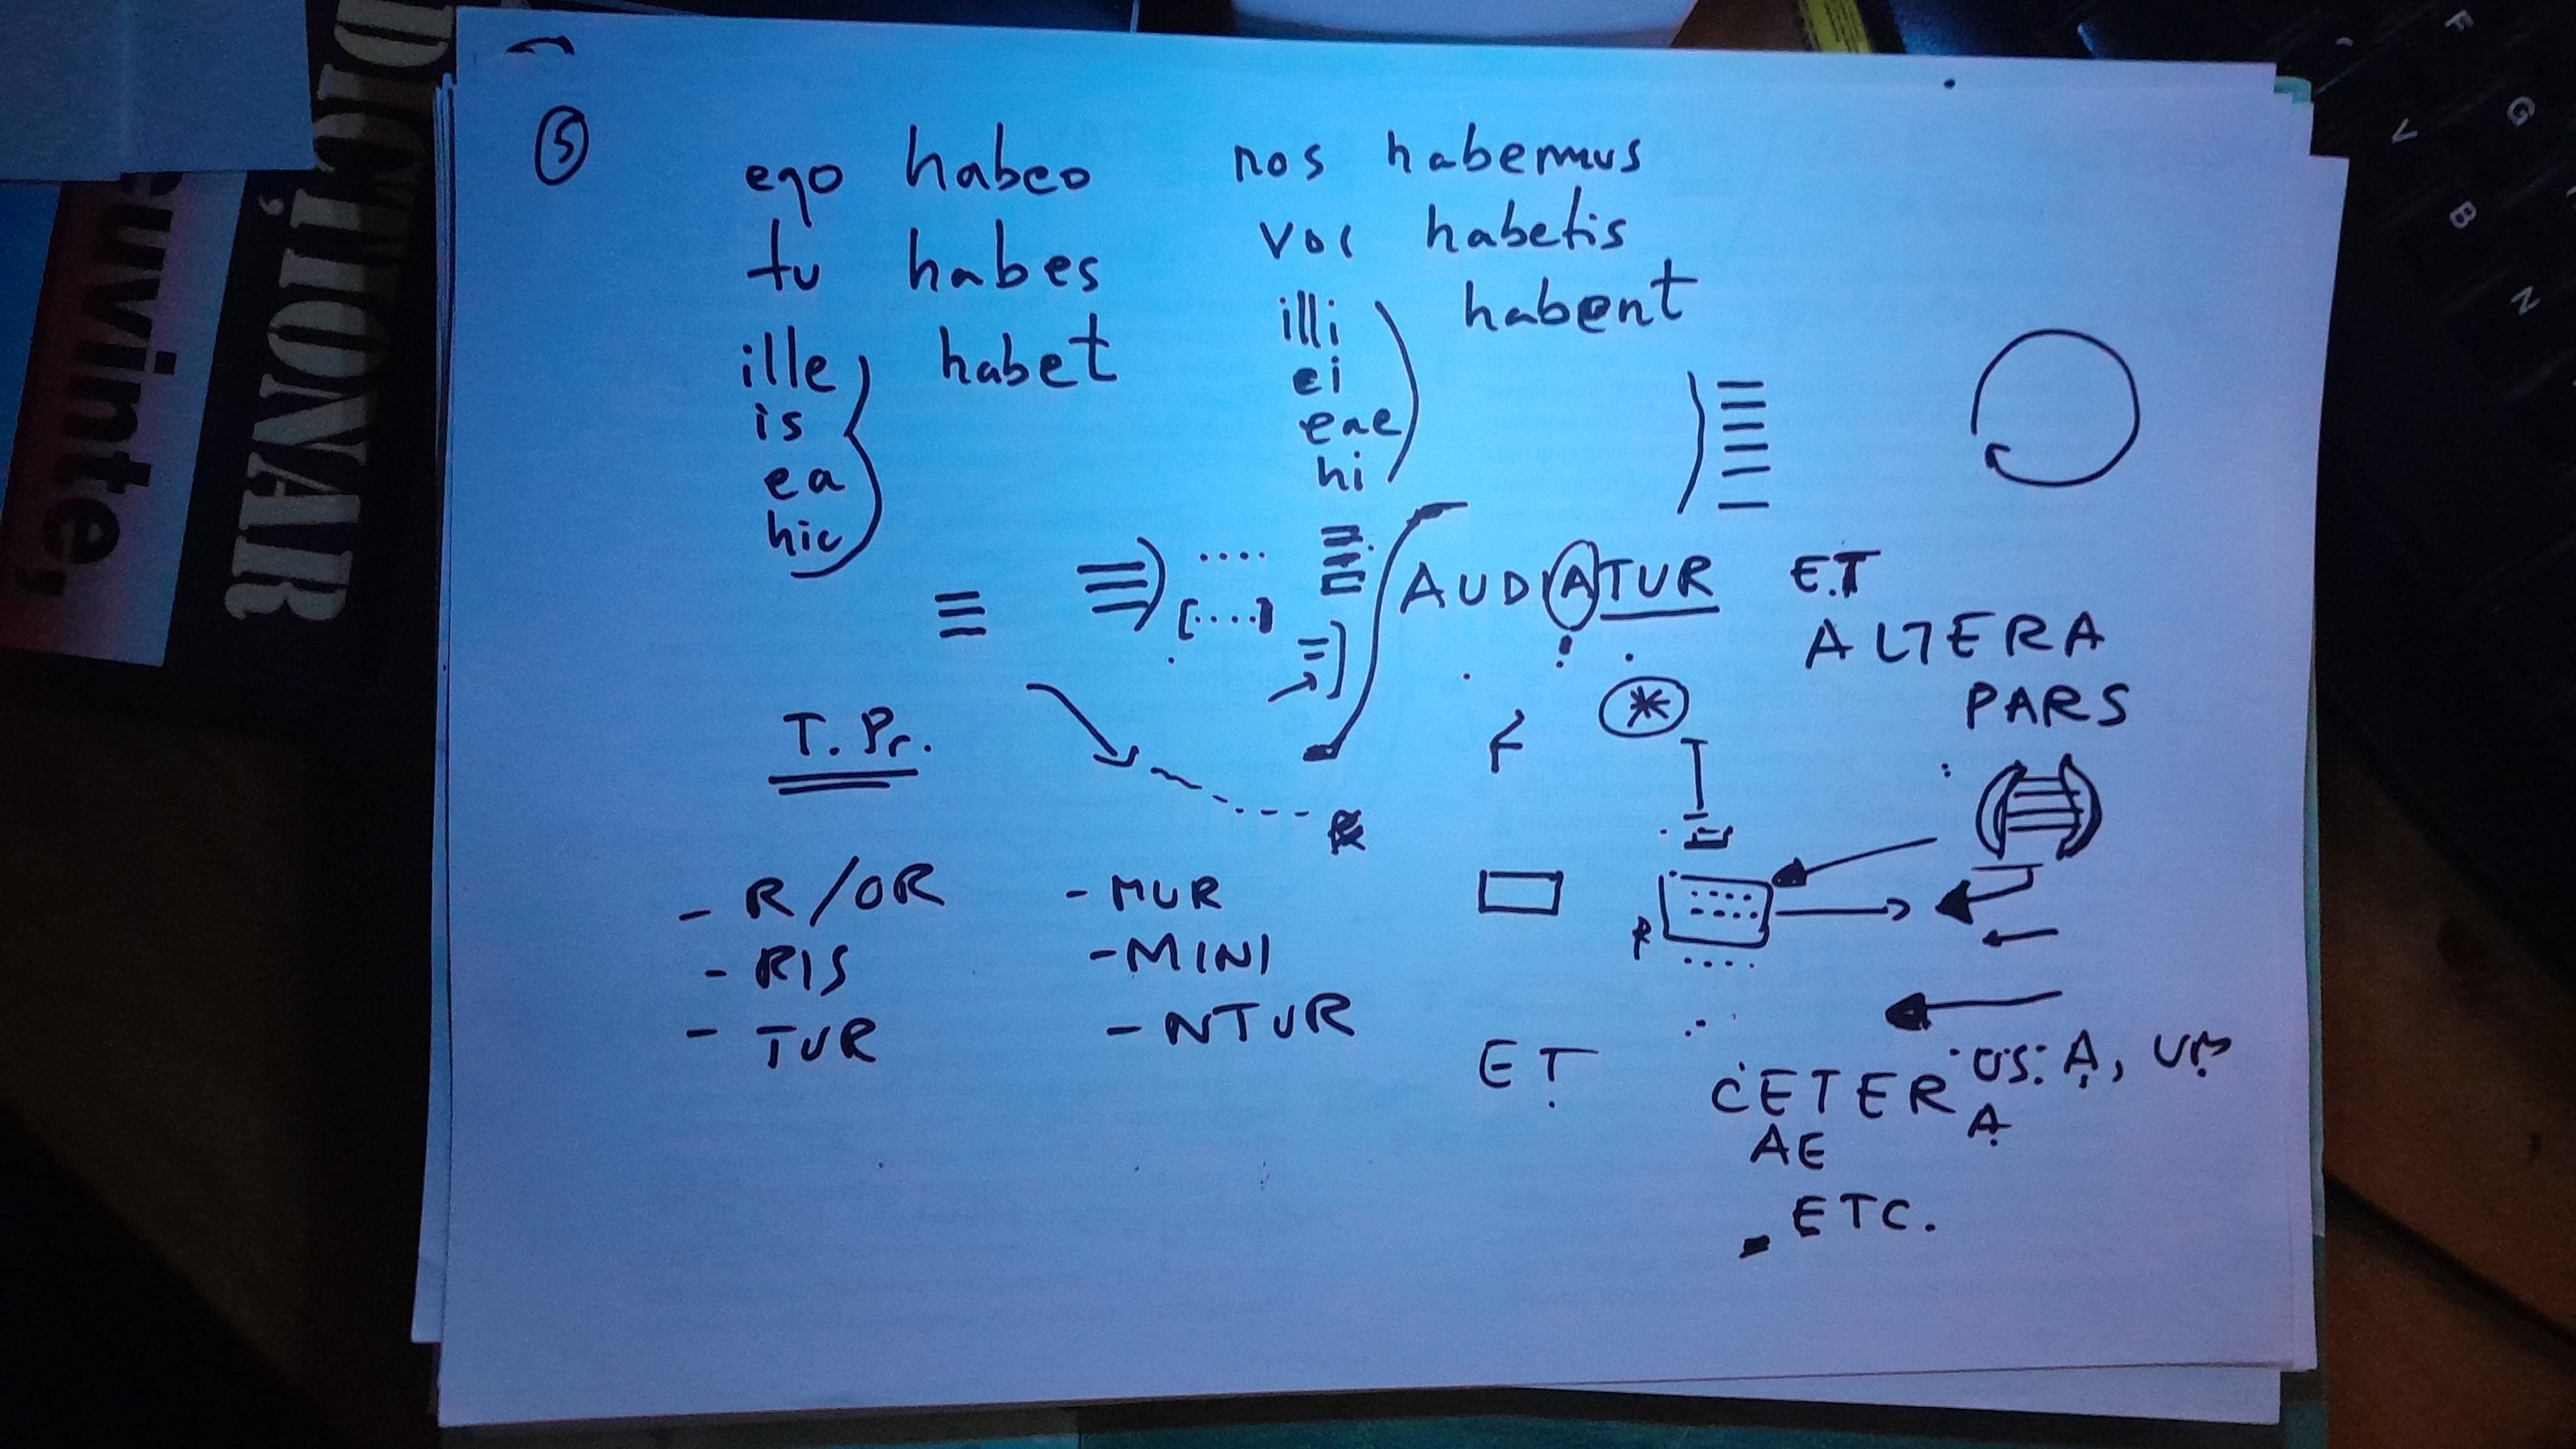 5
ego habeo nos habemus
tu habes vos habetis
ille habet illi habent
is ei
ea eae
hic hi
AUDIATUR ET
ALTERA
PARS
T. Pr.
- R/OR - MUR
- RIS - MINI
- TUR - NTUR
ET CETER US, A, UM
AE A
ETC.
DICȚIONAR
cuvinte,
F
G
V
B
N